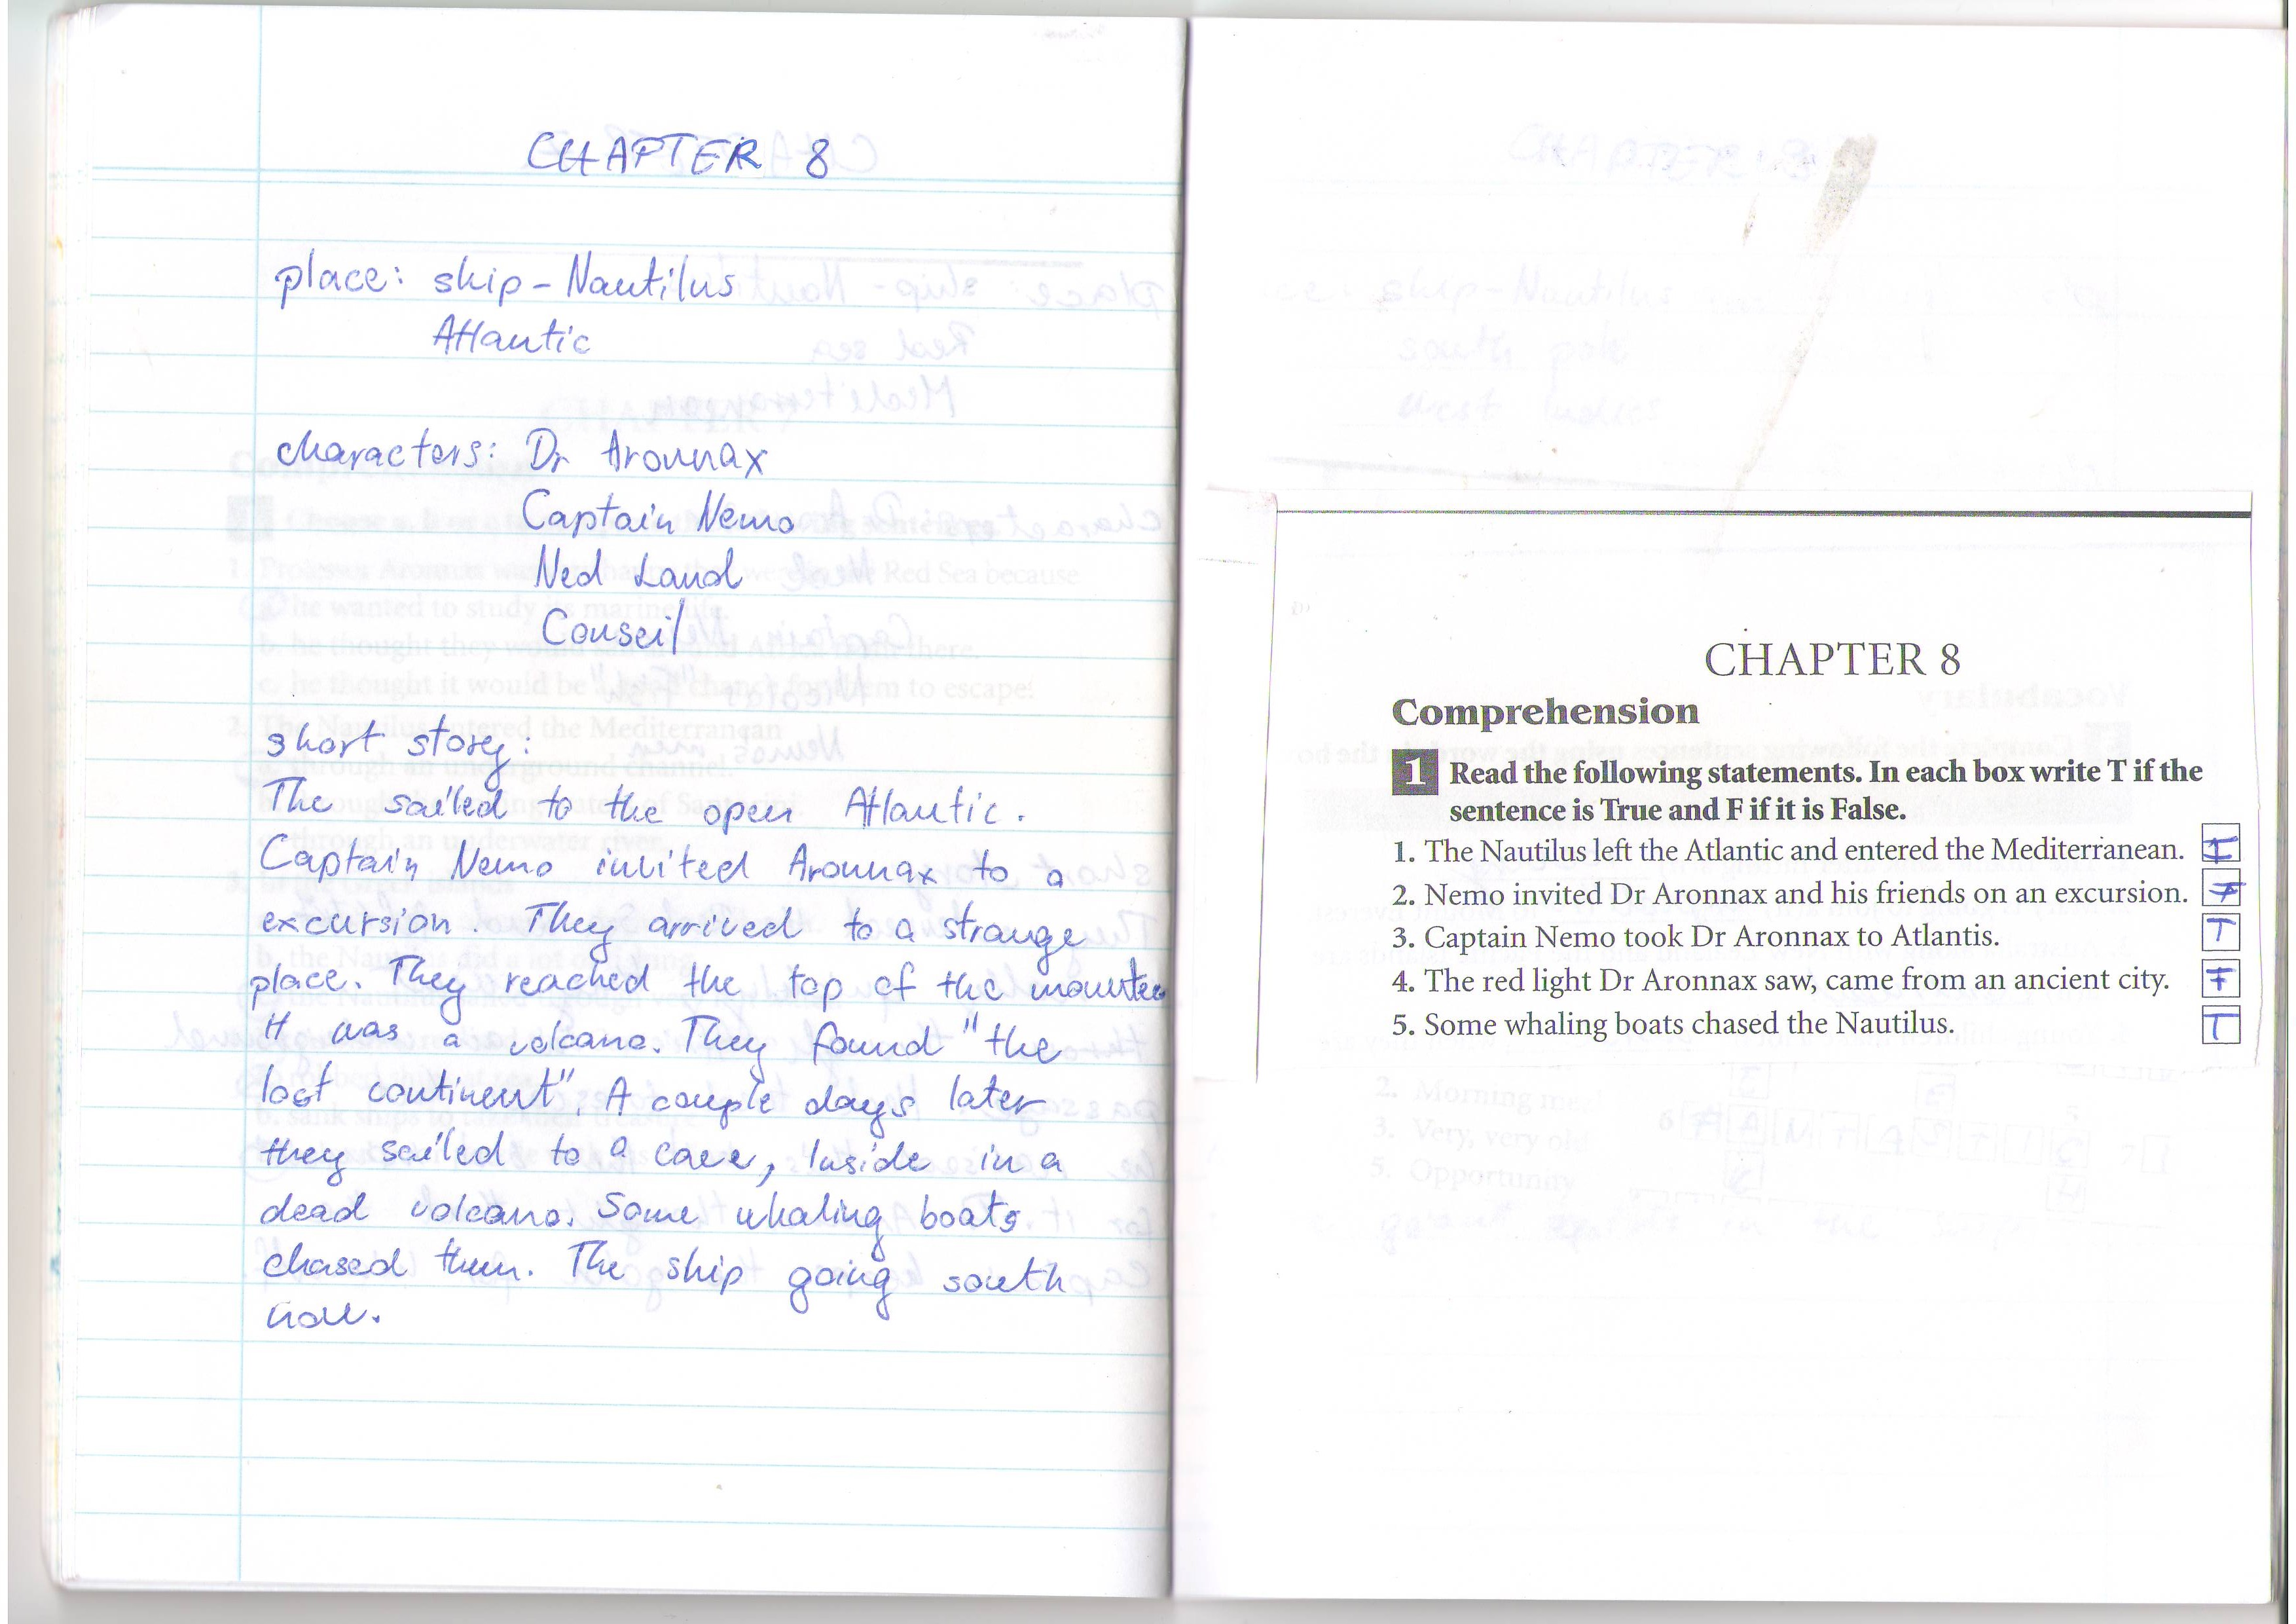 CHAPTER 8
place: ship - Nautilus
Atlantic
characters: Dr Aronnax
Captain Nemo
Ned Land
Conseil
short story:
The sailed to the open Atlantic.
Captain Nemo invited Aronnax to a
excursion. They arrived to a strange
place. They reached the top of the
it was a volcano. They found "the
lost continent". A couple days later
they sailed to a cave, Inside in a
dead volcano. Some whaling boats
chased them. The ship going south
now.
CHAPTER 8
Comprehension
1 Read the following statements. In each box write T if the
sentence is True and F if it is False.
1. The Nautilus left the Atlantic and entered the Mediterranean.
2. Nemo invited Dr Aronnax and his friends on an excursion. F
3. Captain Nemo took Dr Aronnax to Atlantis. T
4. The red light Dr Aronnax saw, came from an ancient city. F
5. Some whaling boats chased the Nautilus. T